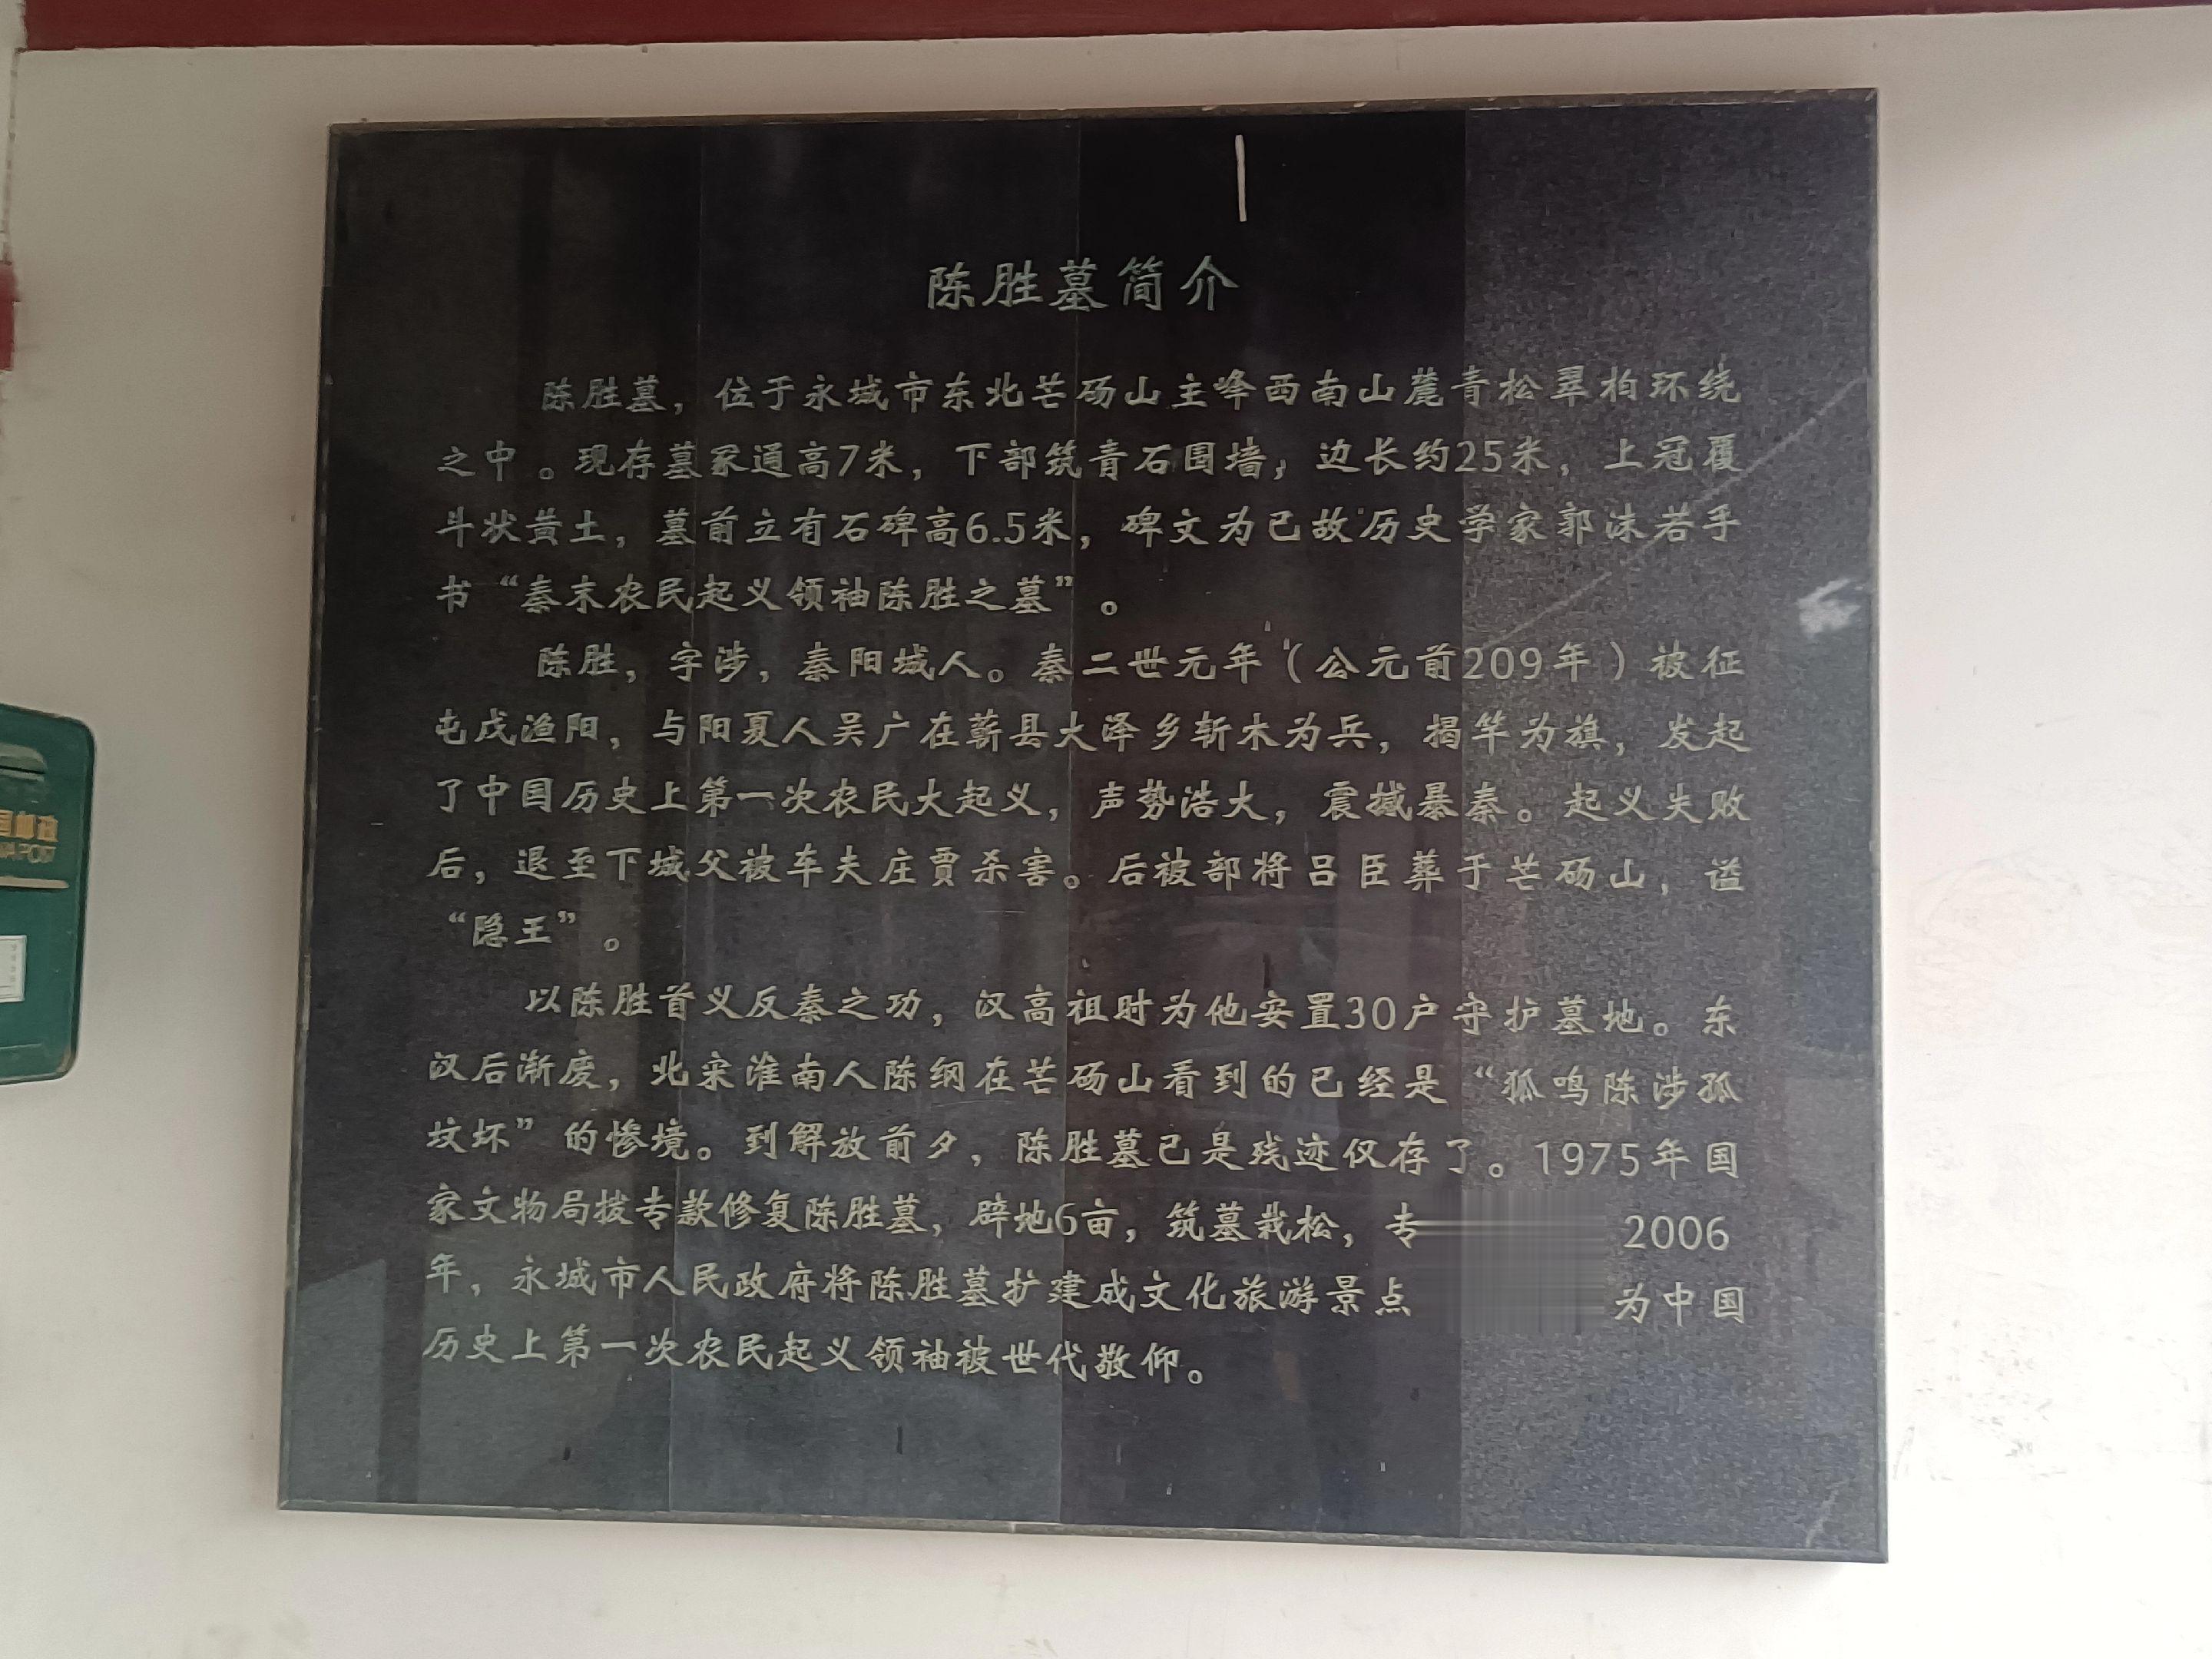 陈胜墓简介
陈胜墓，位于永城市东北芒砀山主峰西南山麓青松翠柏环绕
之中。现存墓冢通高7米，下部筑青石围墙，边长约25米，上冠覆
斗状黄土，墓前立有石碑高6.5米，碑文为已故历史学家郭沫若手
书“秦末农民起义领袖陈胜之墓”。
陈胜，字涉，秦阳城人。秦二世元年（公元前209年）被征
屯戍渔阳，与阳夏人吴广在蕲县大泽乡斩木为兵，揭竿为旗，发起
了中国历史上第一次农民大起义，声势浩大，震撼暴秦。起义失败
后，退至下城父被车夫庄贾杀害。后被部将吕臣葬于芒砀山，谥
“隐王”。
以陈胜首义反秦之功，汉高祖时为他安置30户守护墓地。东
汉后渐废，北宋淮南人陈纲在芒砀山看到的已经是“狐鸣陈涉孤
坟坏”的惨境。到解放前夕，陈胜墓已是残迹仅存了。1975年国
家文物局拨专款修复陈胜墓，辟地6亩，筑墓栽松，专 2006
年，永城市人民政府将陈胜墓扩建成文化旅游景点 为中国
历史上第一次农民起义领袖被世代敬仰。
国邮政
NA POST